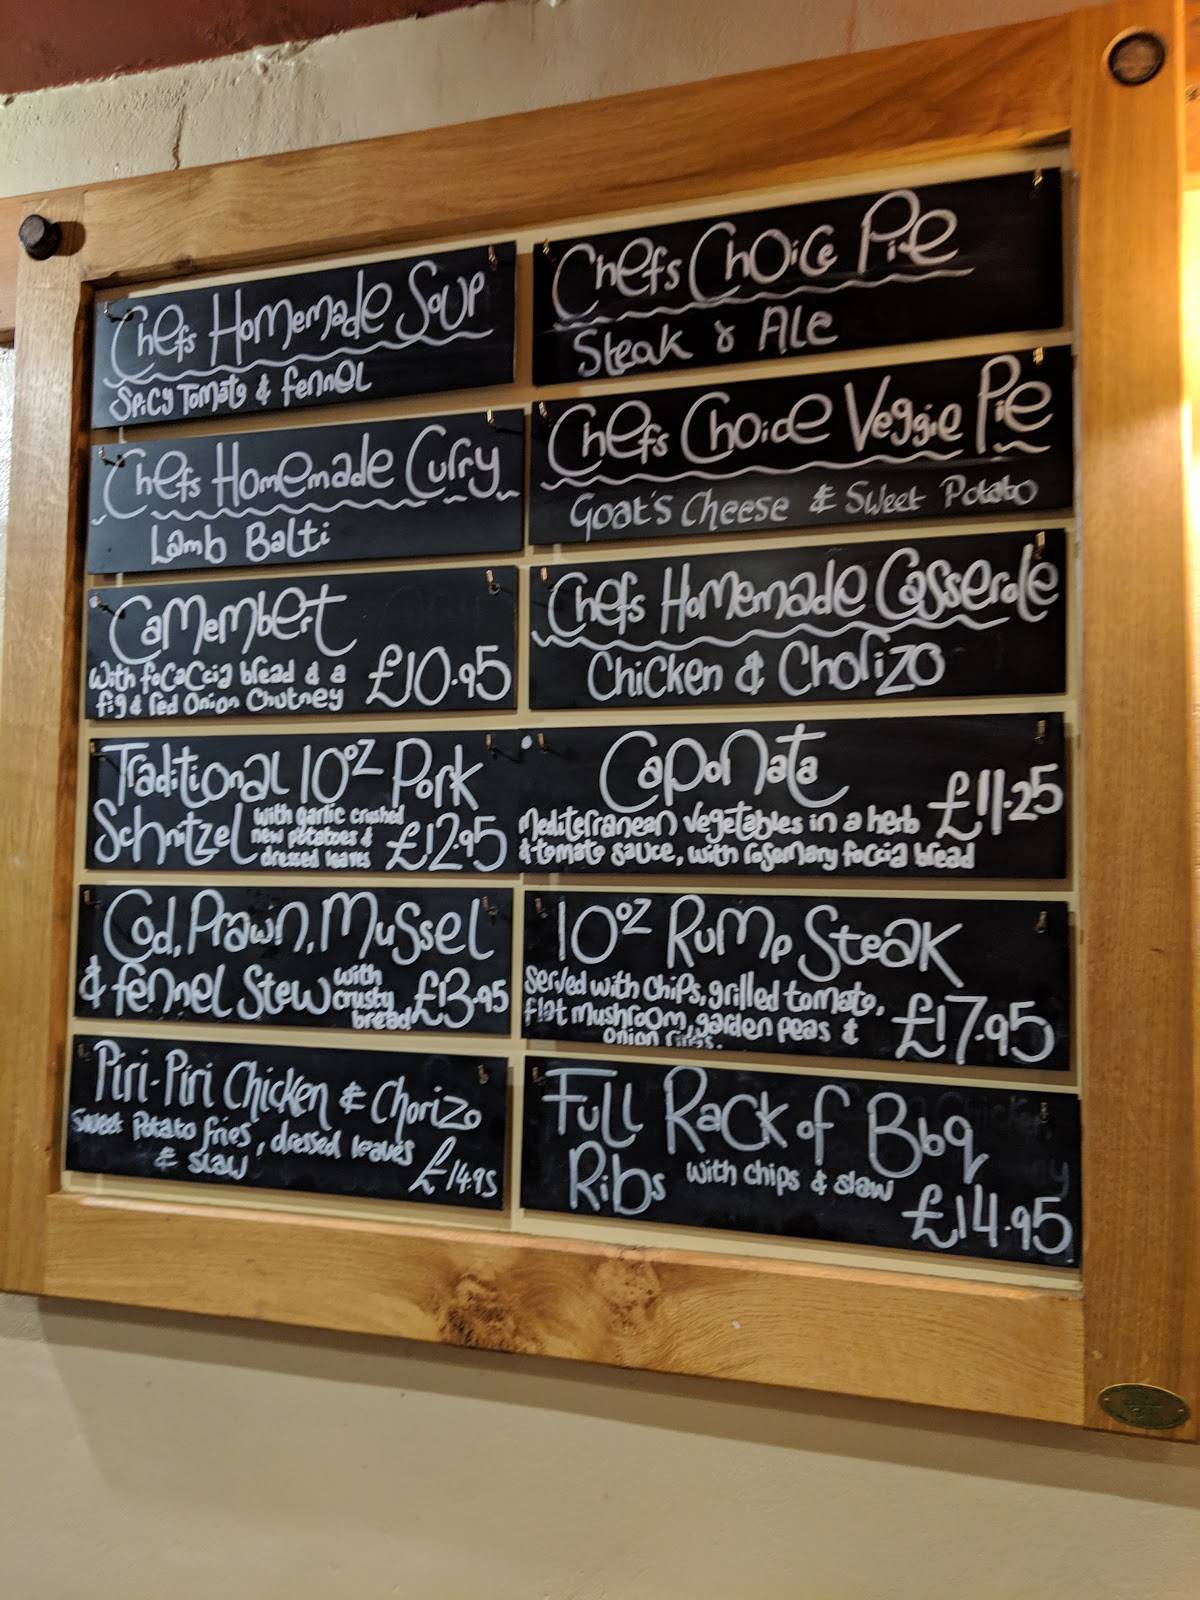 Chefs Homemade Soup
Spicy Tomato & fennel
Chefs Homemade Curry
Lamb Balti
Camembert
with focaccia bread & a
fig & red Onion Chutney £10.95
Traditional 10oz Pork
Schnitzel with garlic crushed
new potatoes &
dressed leaves £12.95
Cod, Prawn, Mussel
& fennel Stew with
crusty
bread £13.95
Piri-Piri Chicken & Chorizo
Sweet Potato fries, dressed leaves
& slaw £14.95
Chefs Choice Pie
Steak & Ale
Chefs Choice Veggie Pie
Goat's Cheese & Sweet Potato
Chefs Homemade Casserole
Chicken & Chorizo
Caponata
£11.25
Mediterranean vegetables in a herb
& tomato sauce, with rosemary foccia bread
10oz Rump Steak
served with chips, grilled tomato,
flat mushroom, garden peas &
onion rings. £17.95
Full Rack of Bbq
Ribs with chips & slaw
£14.95